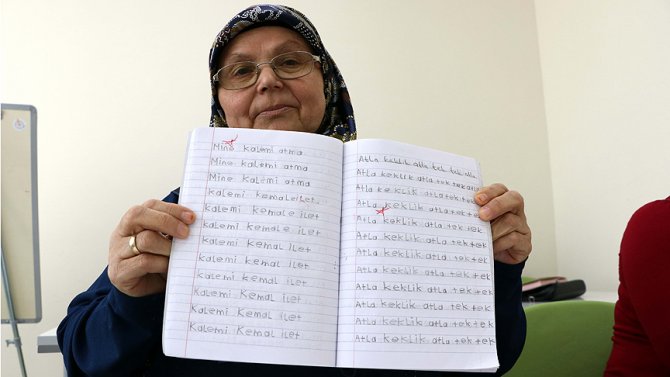 Mine kalemi atma
Mine kalemi atma
Mine kalemi atma
kalemi kemale ilet.
kalemi kemale ilet
kalemi kemale ilet
kalemi kemal ilet
kalemi kemal ilet
kalemi kemal ilet
kalemi kemal ilet
kalemi kemal ilet
kalemi kemal ilet
Atla keklik atla tek tek atla
Atla keklik atla tek tek
Atla keklik atla tek tek
Atla keklik atla tek tek
Atla keklik atla tek tek
Atla keklik atla tek tek
Atla keklik atla tek tek
Atla keklik atla tek tek
Atla keklik atla tek tek
Atla keklik atla tek tek
Atla keklik atla tek tek